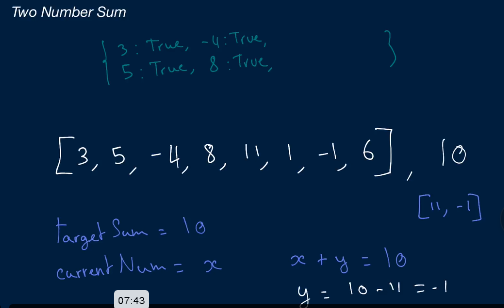 Two Number Sum
{ 3 : True, -4 : True,
5 : True, 8 : True, }
[3, 5, -4, 8, 11, 1, -1, 6] , 10
[11, -1]
targetSum = 10
currentNum = x
x + y = 10
y = 10 - 11 = -1
07:43